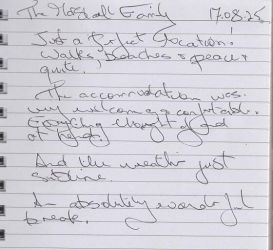 The Marshall Family 17.08.25
Just a Perfect Location!
Walks, Beaches & peace &
quite.
The accommodation was
very welcoming & comfortable.
Everything thought of and
at hand
And the weather just
sublime.
An absolutely wonderful
break.